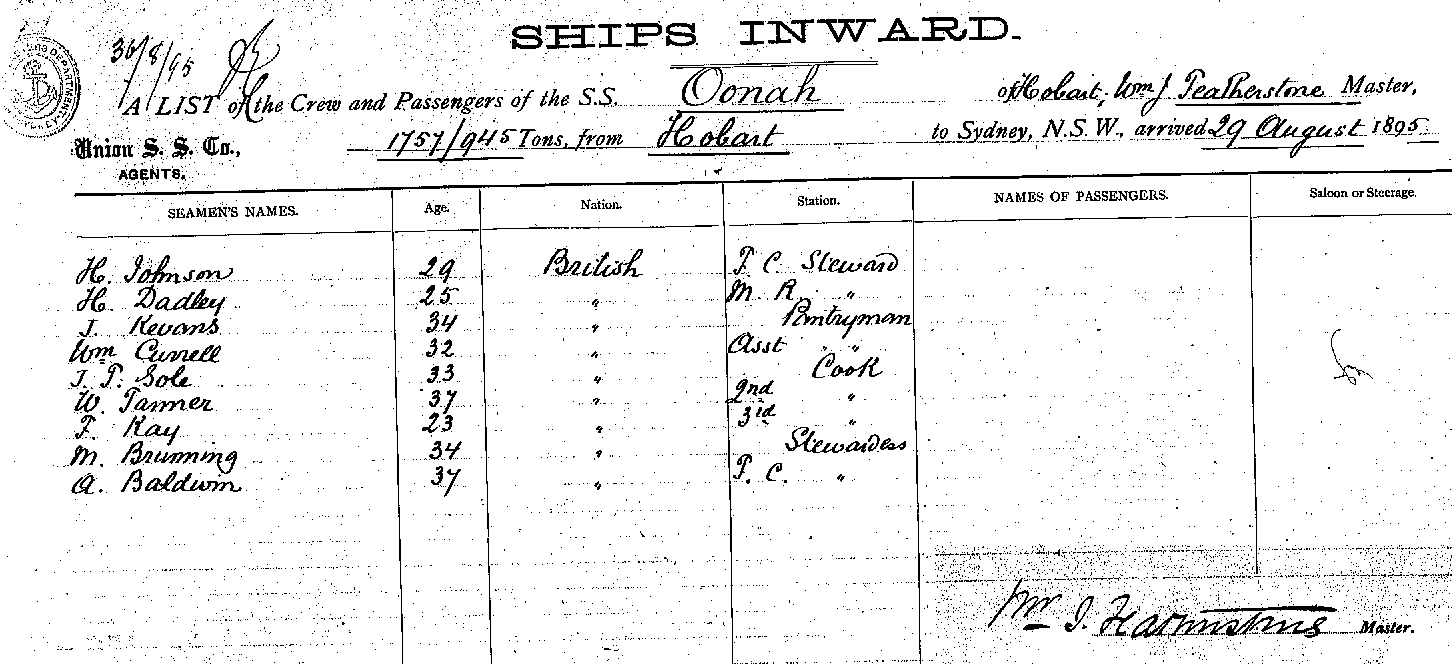 SHIPS INWARD.
30/8/95
A LIST of the Crew and Passengers of the S.S. Oonah of Hobart, Wm J Featherstone Master,
Union S. S. Co., 1757/945 Tons, from Hobart to Sydney, N.S.W., arrived 29 August 1895
AGENTS.
SEAMEN'S NAMES. Age. Nation. Station. NAMES OF PASSENGERS. Saloon or Steerage.
H. Johnson 29 British F. C. Steward
H. Dadley 25 " M R "
J. Kevans 34 " Pantryman
Wm Currell 32 " Asst " "
J. P. Sole 33 " Cook
W. Tanner 37 " 2nd "
F. Kay 23 " 3rd "
M. Brunning 34 " Stewardess
A. Baldwin 37 " F. C. "
Wm J. Featherstone Master.